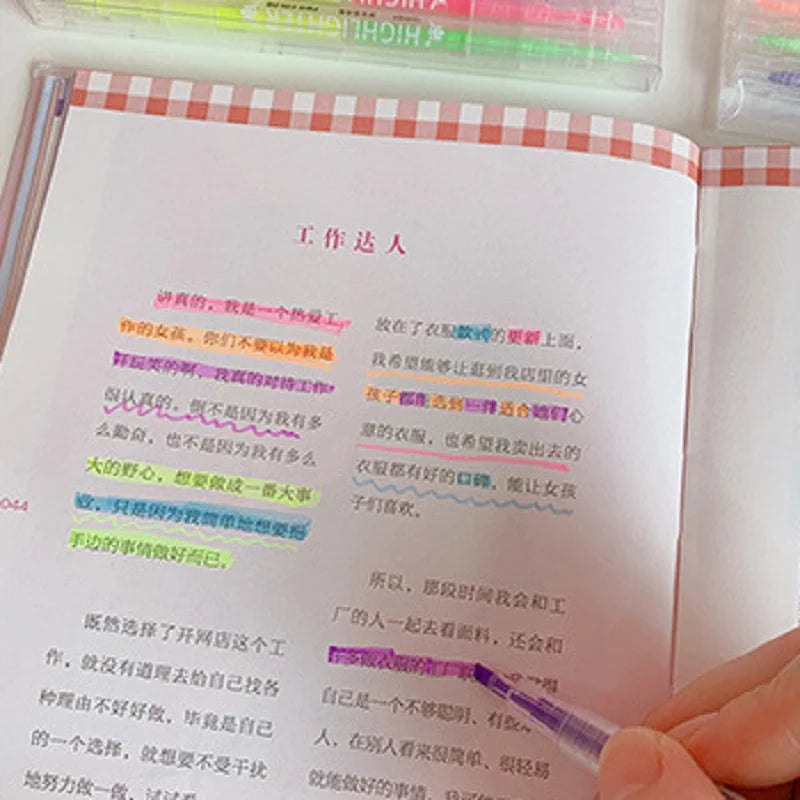 HIGHLIGHTER
HIGHLIGHTER
工作达人
讲真的，我是一个热爱工
作的女孩，你们不要以为我是
开玩笑的啊，我真的对待工作
很认真的，倒不是因为我有多
么勤奋，也不是因为我有多么
大的野心，想要做成一番大事
业，只是因为我简单地想要把
手边的事情做好而已。
既然选择了开网店这个工
作，就没有道理去给自己找各
种理由不好好做，毕竟是自己
的一个选择，就想要不受干扰
地努力做一做，试试看
044
放在了衣服款式的更新上面，
我希望能够让逛到我店里的女
孩子都能选到一件适合她们心
意的衣服，也希望我卖出去的
衣服都有好的口碑，能让女孩
子们喜欢。
所以，那段时间我会和工
厂的人一起去看面料，还会和
衣服的
自己是一个不够聪明、有些
人，在别人看来很简单、很轻易
就能做好的事情，我可能